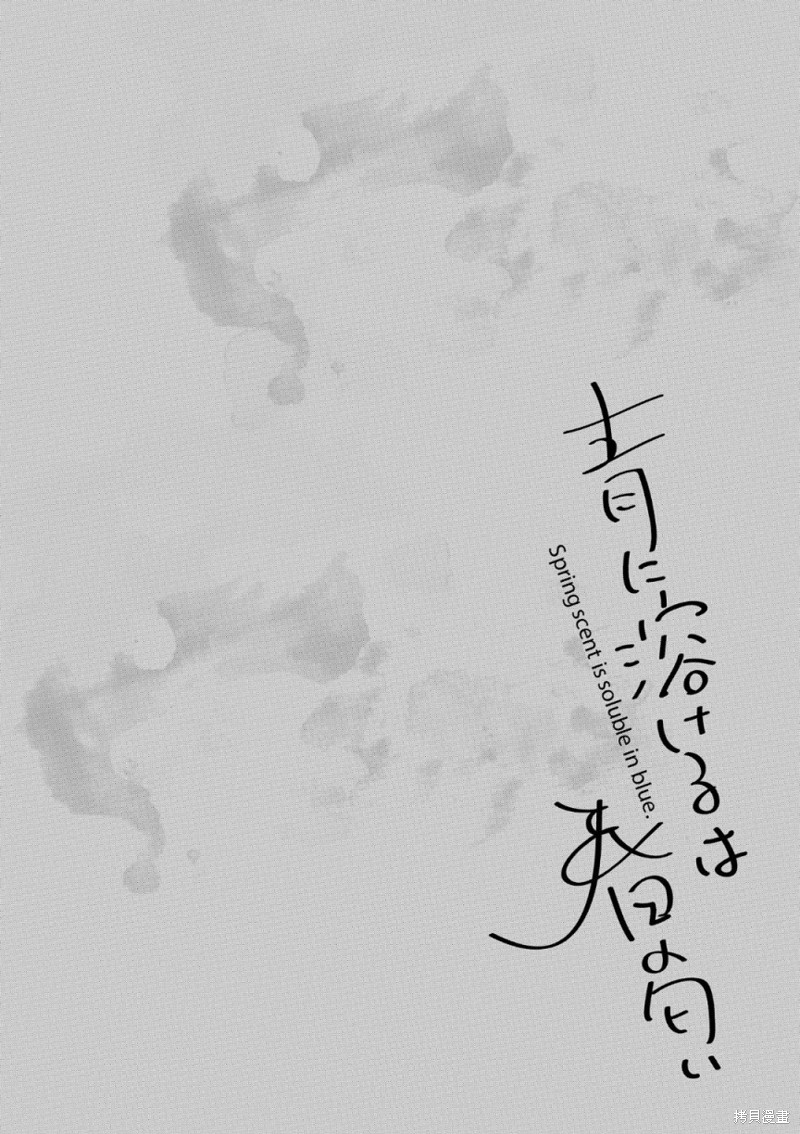 青に溶けるは
春の匂い
Spring scent is soluble in blue.
拷貝漫畫